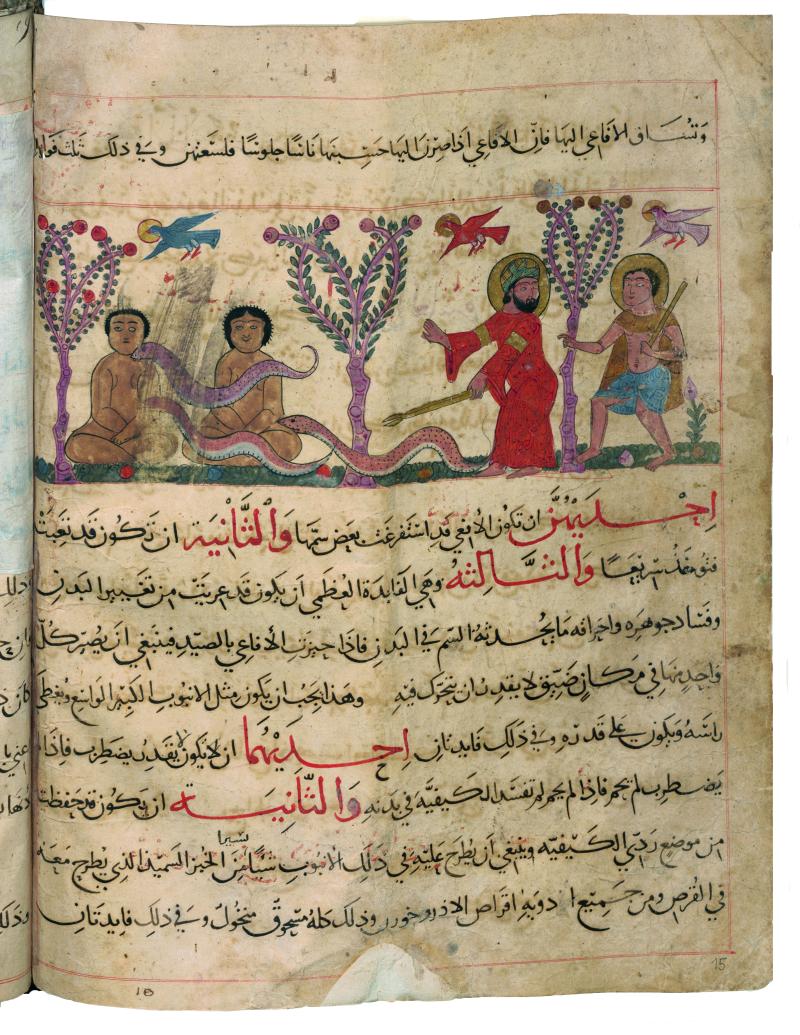 وتنساق الأفاعي اليها فإن الأفاعي اذا صرن اليها حسبنها ناسا جلوسا فلسعتهن وفي ذلك ثلث فوائد
احديهن ان تكون الافعى قد استفرغت بعض سمها والثانية ان تكون قد تعبت
سريعا والثالثة وهي الفايدة العظمى أن يكون قد عريت من تغيير البدن
وفساد جوهره واحراقه ما يحدثه السم في البدن فاذا حيزت الأفاعي بالصيد فينبغي أن يصير كل
واحد منها في مكان ضيق لا يقدر ان يتحرك فيه وهذا يجب ان يكون مثل الانبوب الكبير الواسع ويغطى
راسه ويكون على قدره وفي ذلك فايدتان احديهما ان لا يكون يقدر يضطرب فاذا لم
يضطرب لم يحم فاذا لم يحم لم تفسد الكيفية في بدنه والثانية ان يكون قد حفظته
من موضع ردي الكيفيه وينبغي أن يطرح عليه في ذلك الانبوب شيئا من الخبز السميذ الذي يطرح معه
يسيرا
في القرص ومن جميع ادوية اقراص الاندروخورن وذلك كله مسحوق منخول وفي ذلك فايدتان
15